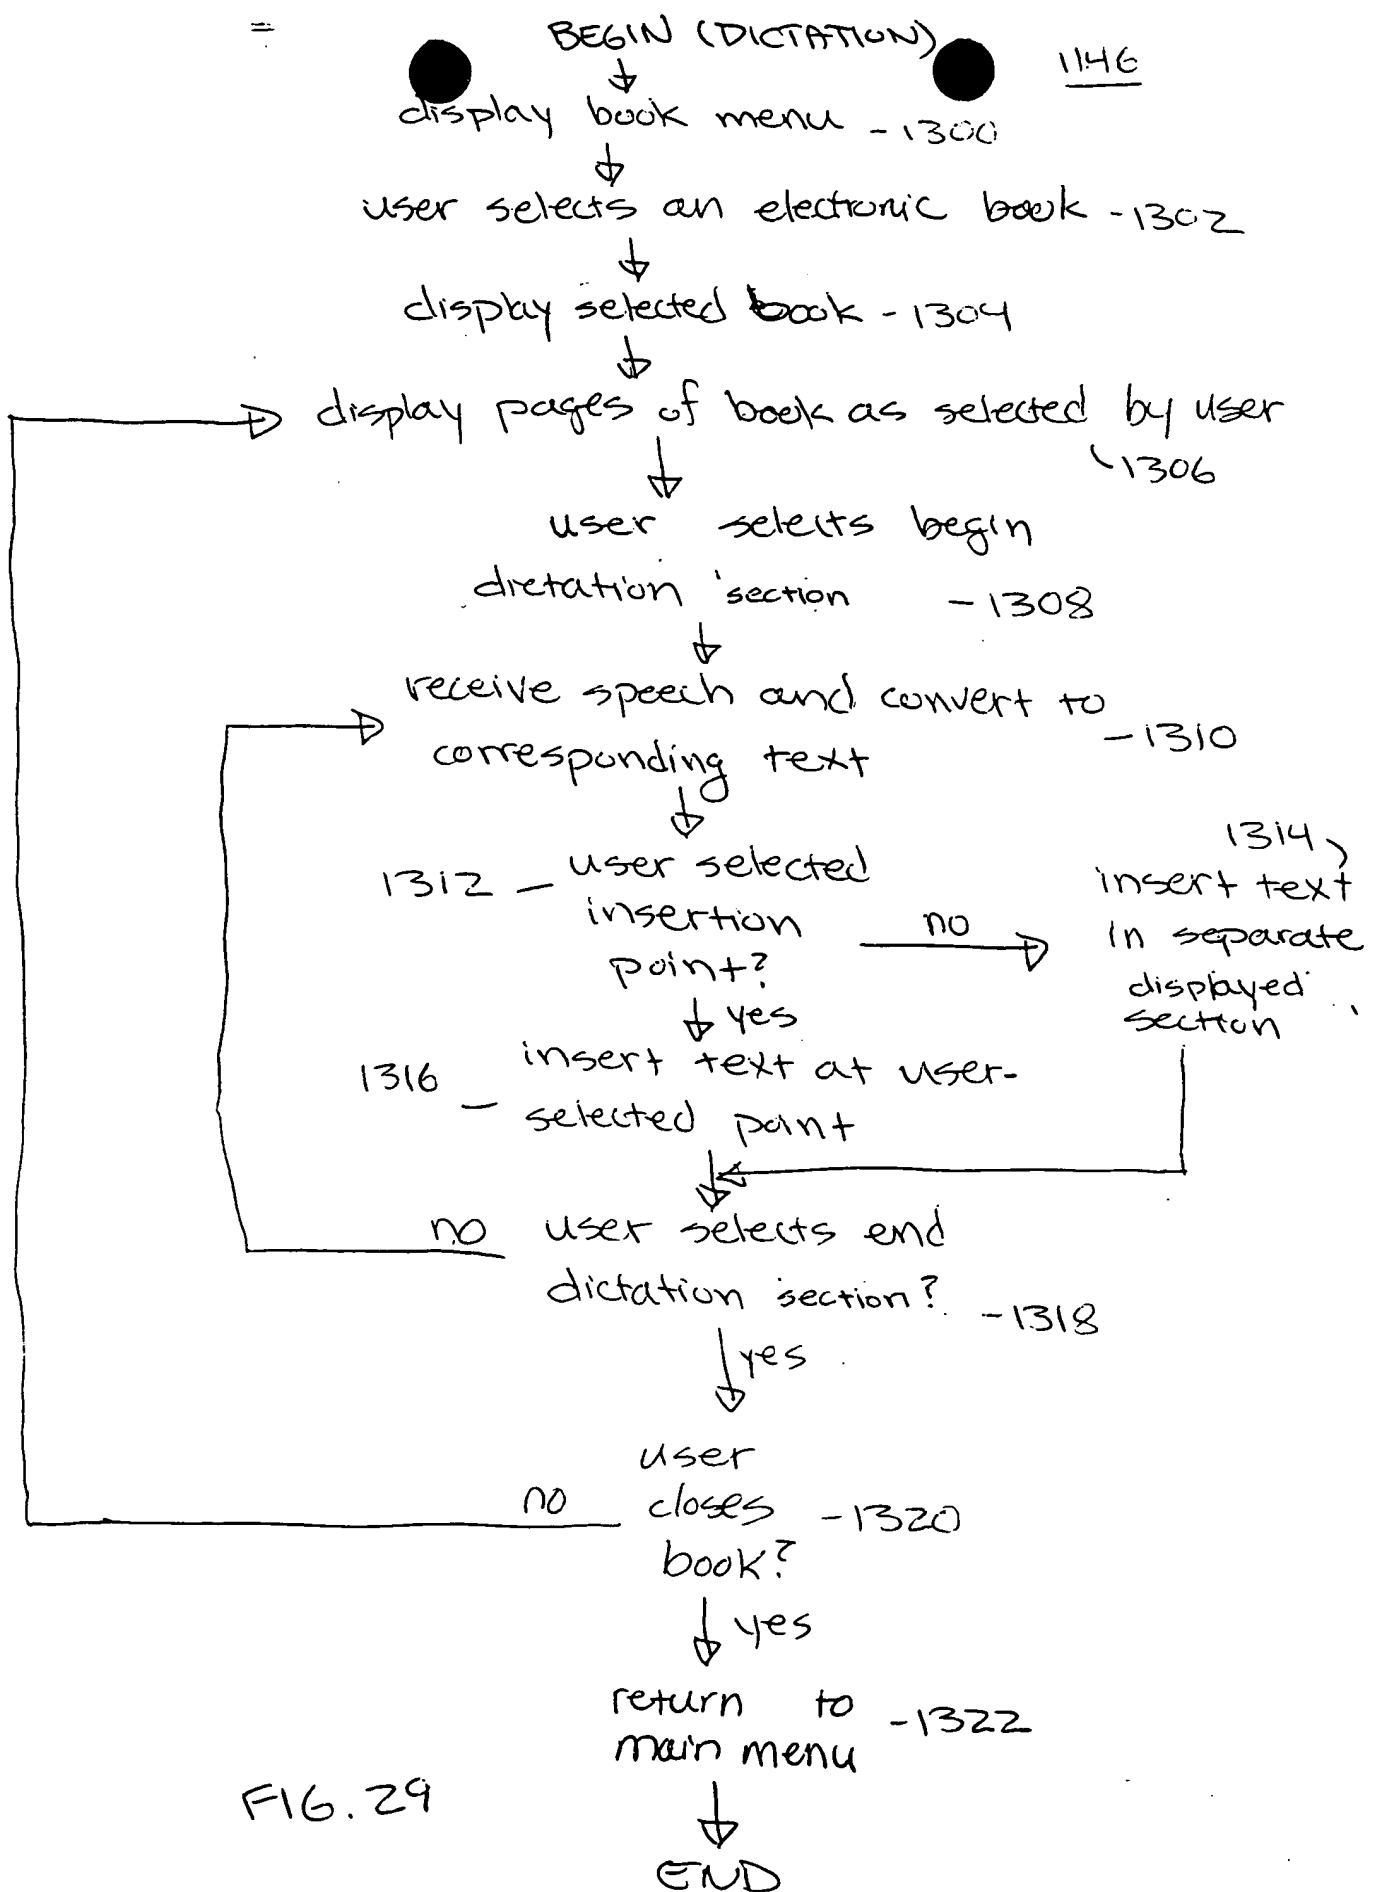 BEGIN (DICTATION)
1146
display book menu - 1300
user selects an electronic book - 1302
display selected book - 1304
display pages of book as selected by user
1306
user selects begin
dictation section - 1308
receive speech and convert to
corresponding text - 1310
1312 - user selected
insertion
point?
no
1314
insert text
in separate
displayed
section
yes
1316 - insert text at user-
selected point
no user selects end
dictation section? - 1318
yes
user
no closes - 1320
book?
yes
return to
main menu - 1322
FIG. 29
END